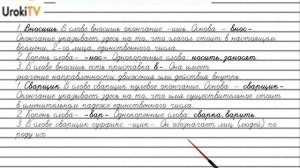 UrokiTV
1. Вносишь. В слове вносишь окончание -ишь. Основа - внос-.
Окончание указывает здесь на то, что глагол стоит в настоящем
времени, 2-го лица, единственного числа.
2. Корень слова- -нос-. Однокоренные слова: носить, заносят.
3. В слове вносишь есть приставка в-. Она имеет
значение направленности движения или действия внутрь.
1. Сварщик. В слове сварщик нулевое окончание. Основа - сварщик-.
Окончание указывает здесь на то, что имя существительное стоит
в именительном падеже единственного числа.
2. Корень слова- -вар-. Однокоренные слова: сварка, варить.
3. В слове сварщик суффикс -щик-. Он обозначает лиц (людей) по
роду их